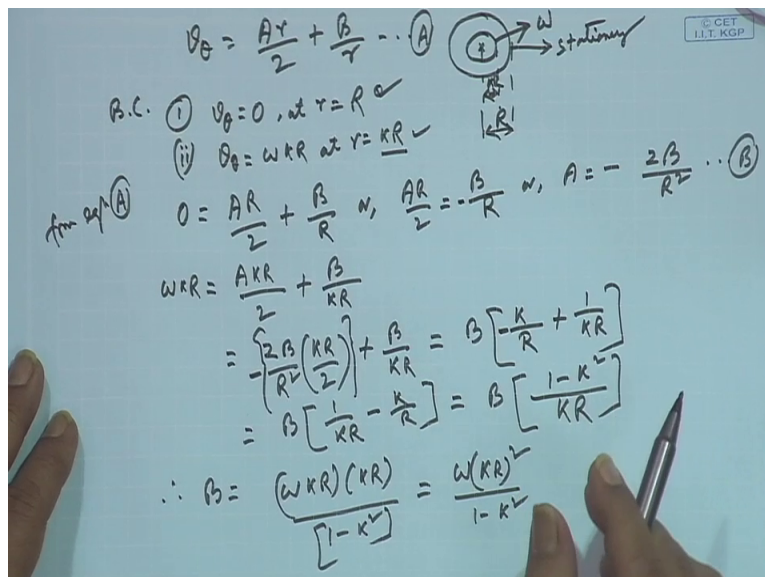 v_θ = Ar/2 + B/r -- Ⓐ
ω
→ stationary
© CET
I.I.T. KGP
KR
R
B.C. (i) v_θ = 0, at r = R ✓
(ii) v_θ = ωKR at r = KR ✓
from eqn Ⓐ 0 = AR/2 + B/R or, AR/2 = -B/R or, A = - 2B/R² -- Ⓑ
ωKR = AKR/2 + B/KR
= -[2B/R² (KR/2)] + B/KR = B[-K/R + 1/KR]
= B[1/KR - K/R] = B[(1-K²)/KR]
∴ B = (ωKR)(KR)/[1-K²] = ω(KR)²/(1-K²)